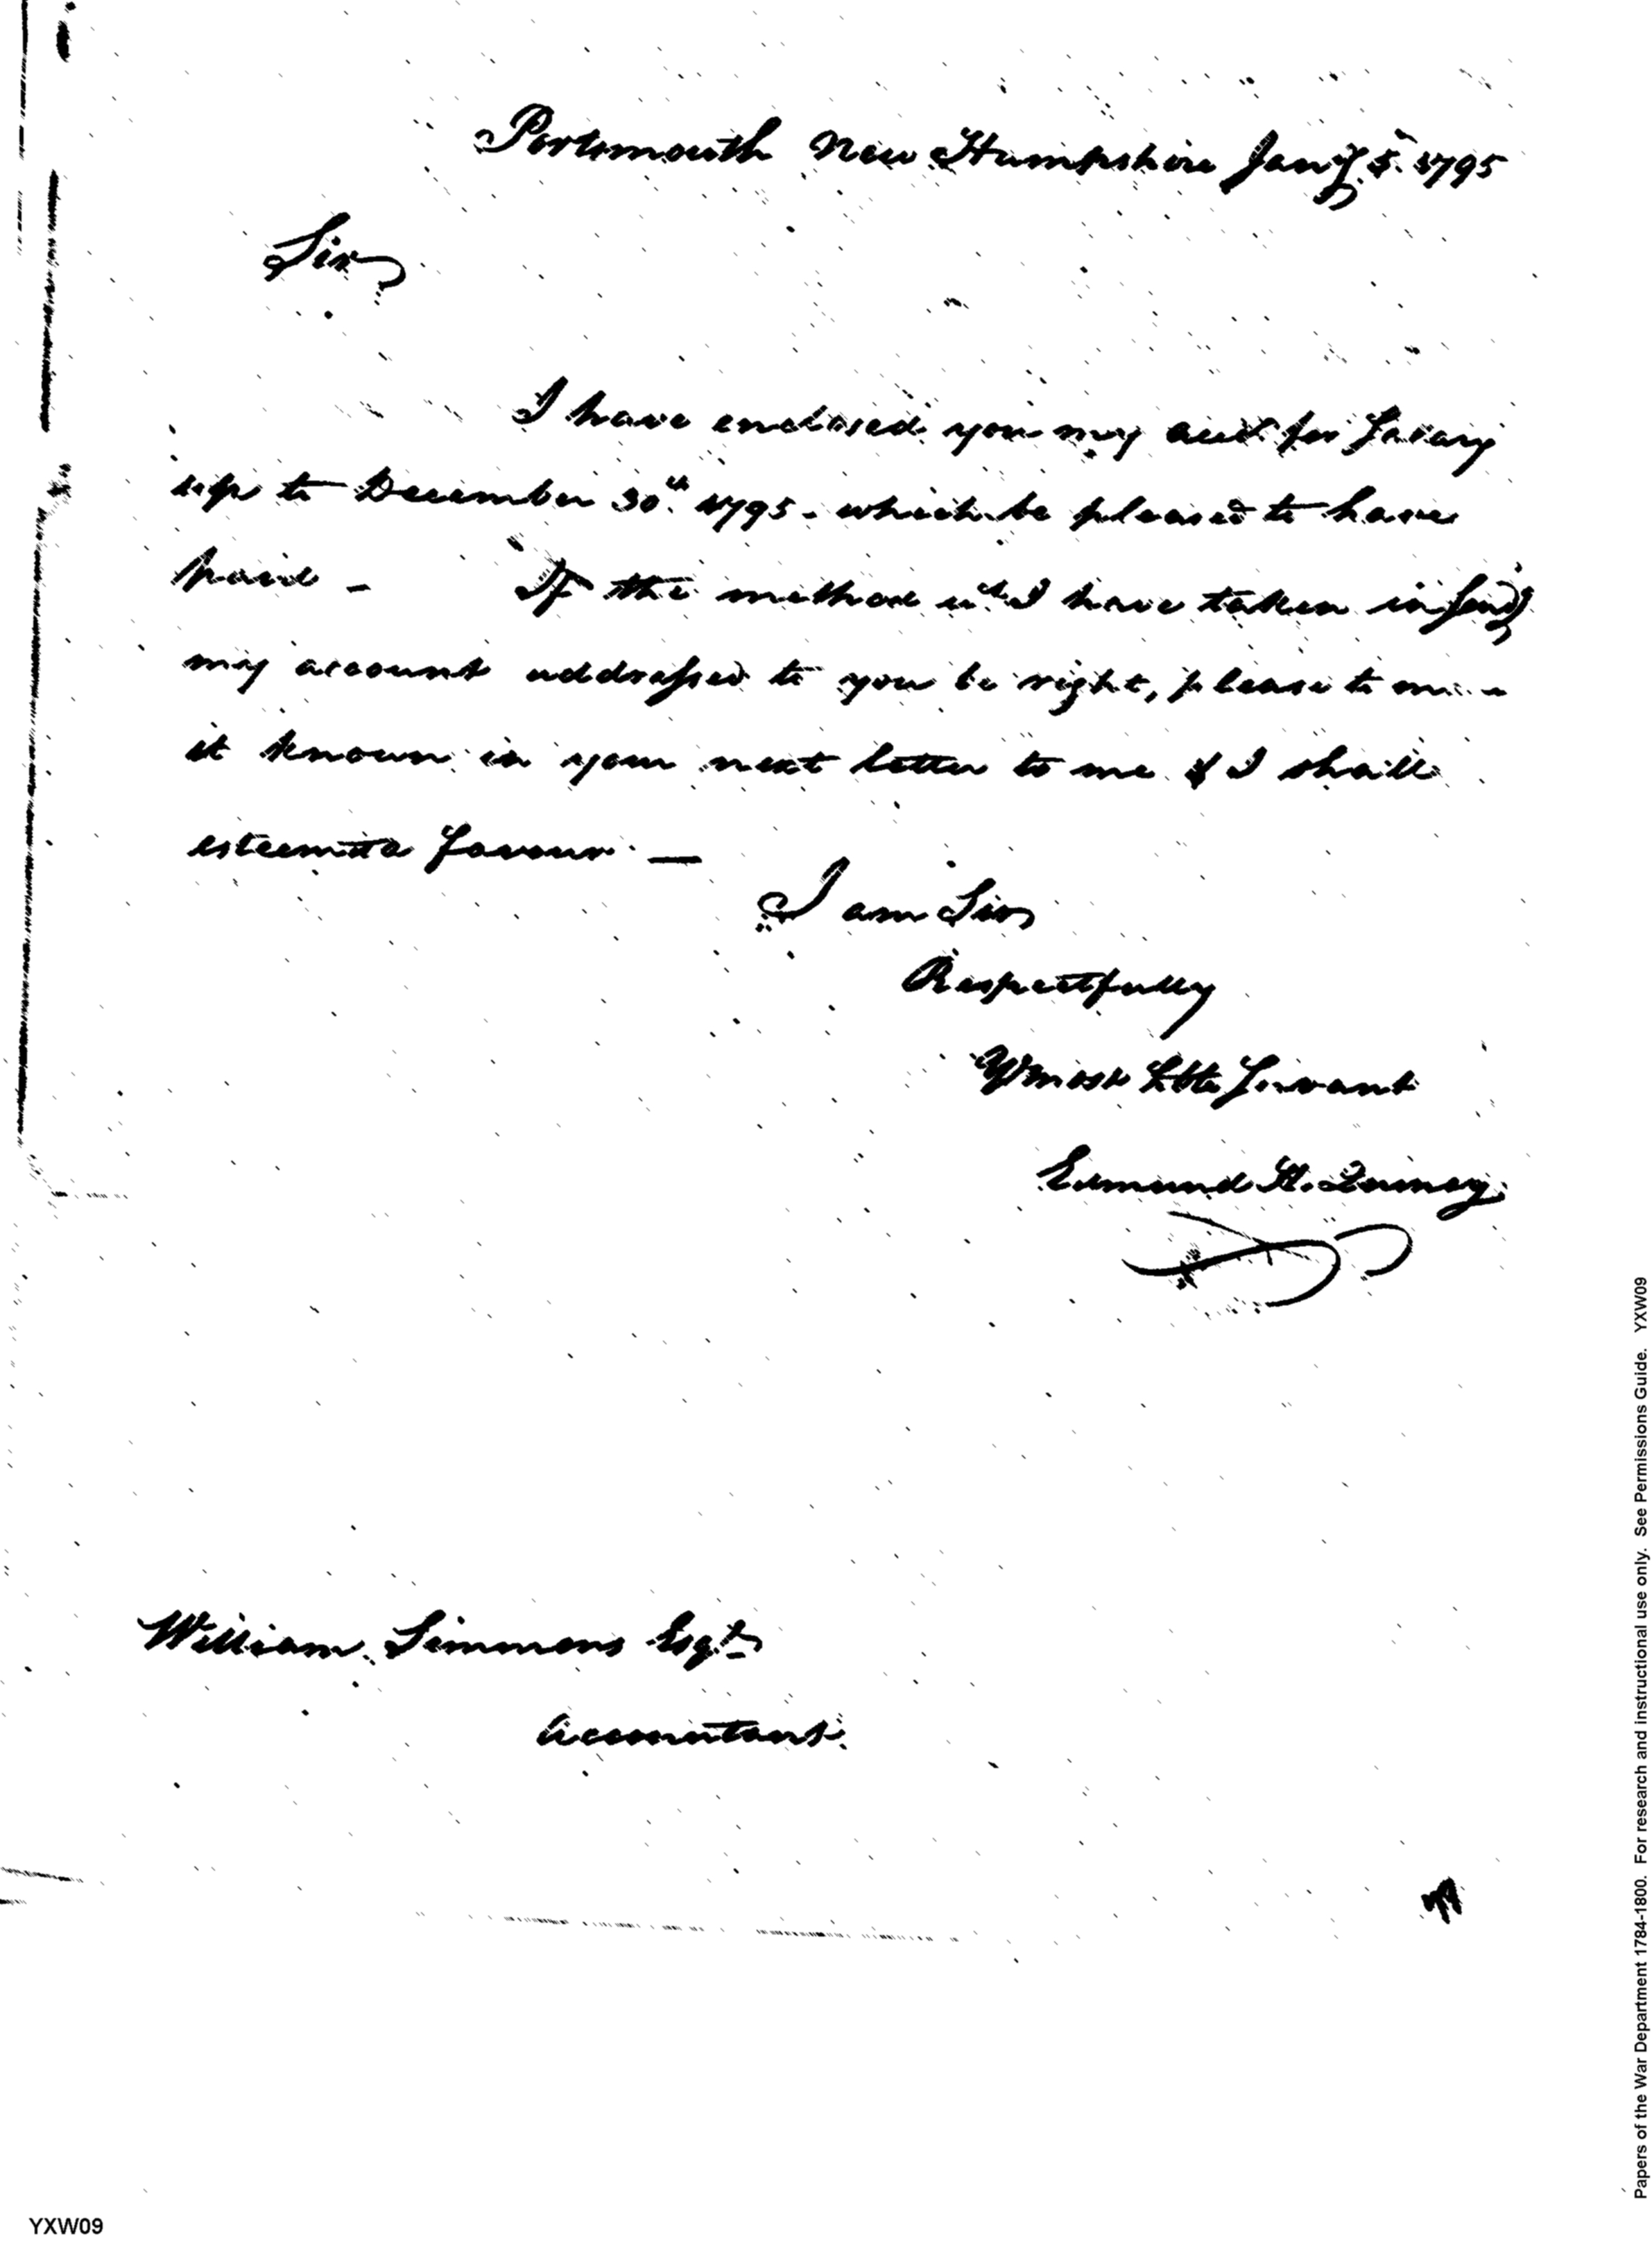 Portsmouth New Hampshire Jany. 5. 1795
Sir
I have enclosed you my acct for Salary
up to December 30th 1795 - which be pleased to have
paid - If the method wch I have taken in sendg
my account addressed to you be right, please to
it known in your next letter to me & I shall
esteem it a favour —
I am Sir
Respectfully
Yr most Obt Servant
Edmund H. Quincy
William Simmons Esqr
Accountant.
YXW09
Papers of the War Department 1784-1800. For research and instructional use only. See Permissions Guide. YXW09